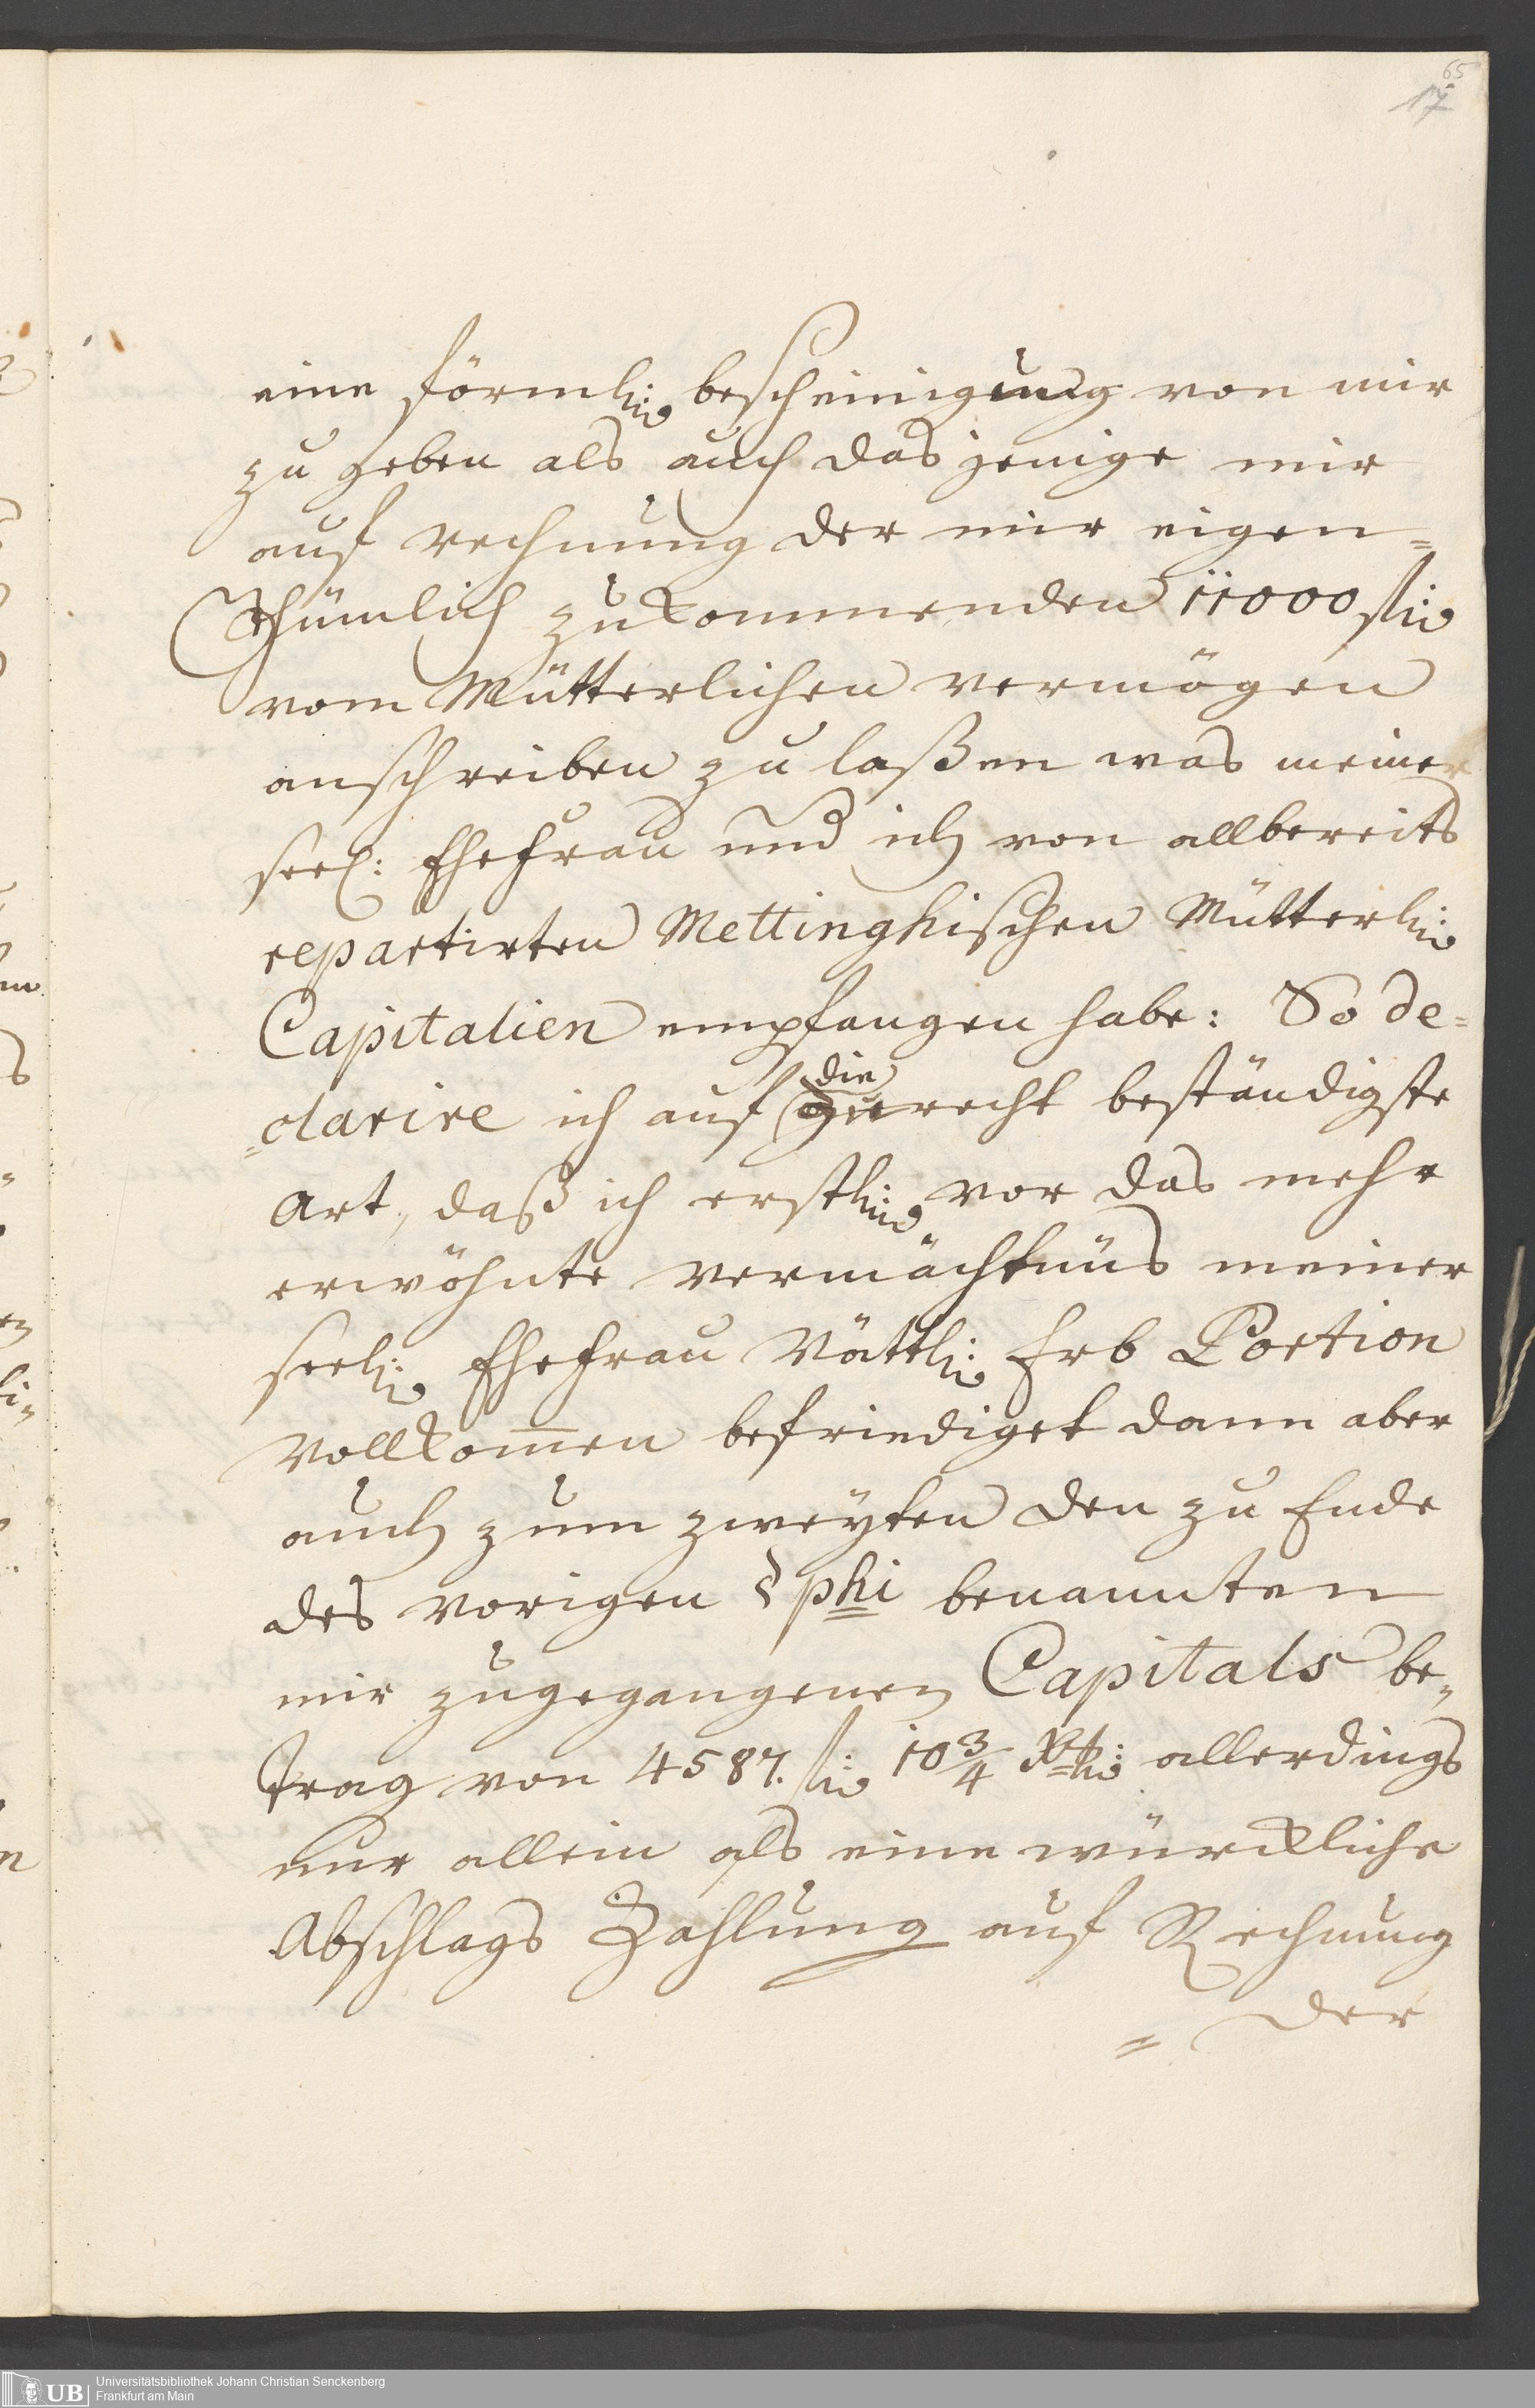 65
17
eine förml: bescheinigung von mir
zu geben als auch das jenige mir
auf rechnung der mir eigen=
thümlich zukommenden 11000 fl:
vom Mütterlichen vermögen
anschreiben zu laßen was meiner
seel: Ehefrau und ich von allbereits
repartirten Mettinghischen Mütterl:
Capitalien empfangen habe: So de=
=clarire ich auf die recht beständigste
Art, daß ich erstl: vor das mehr
erwöhnte vermächtnüs meiner
seel: Ehefrau Vättl: Erb Portion
vollkom̄en befriediget dann aber
auch zum zweyten den zu Ende
des vorigen §phi benannten
mir zugegangenen Capitals be=
trag von 4587. fl: 10 3/4 Xr: allerdings
nur allein als eine würckliche
Abschlags Zahlung auf Rechnung
= der
UB Universitätsbibliothek Johann Christian Senckenberg
Frankfurt am Main